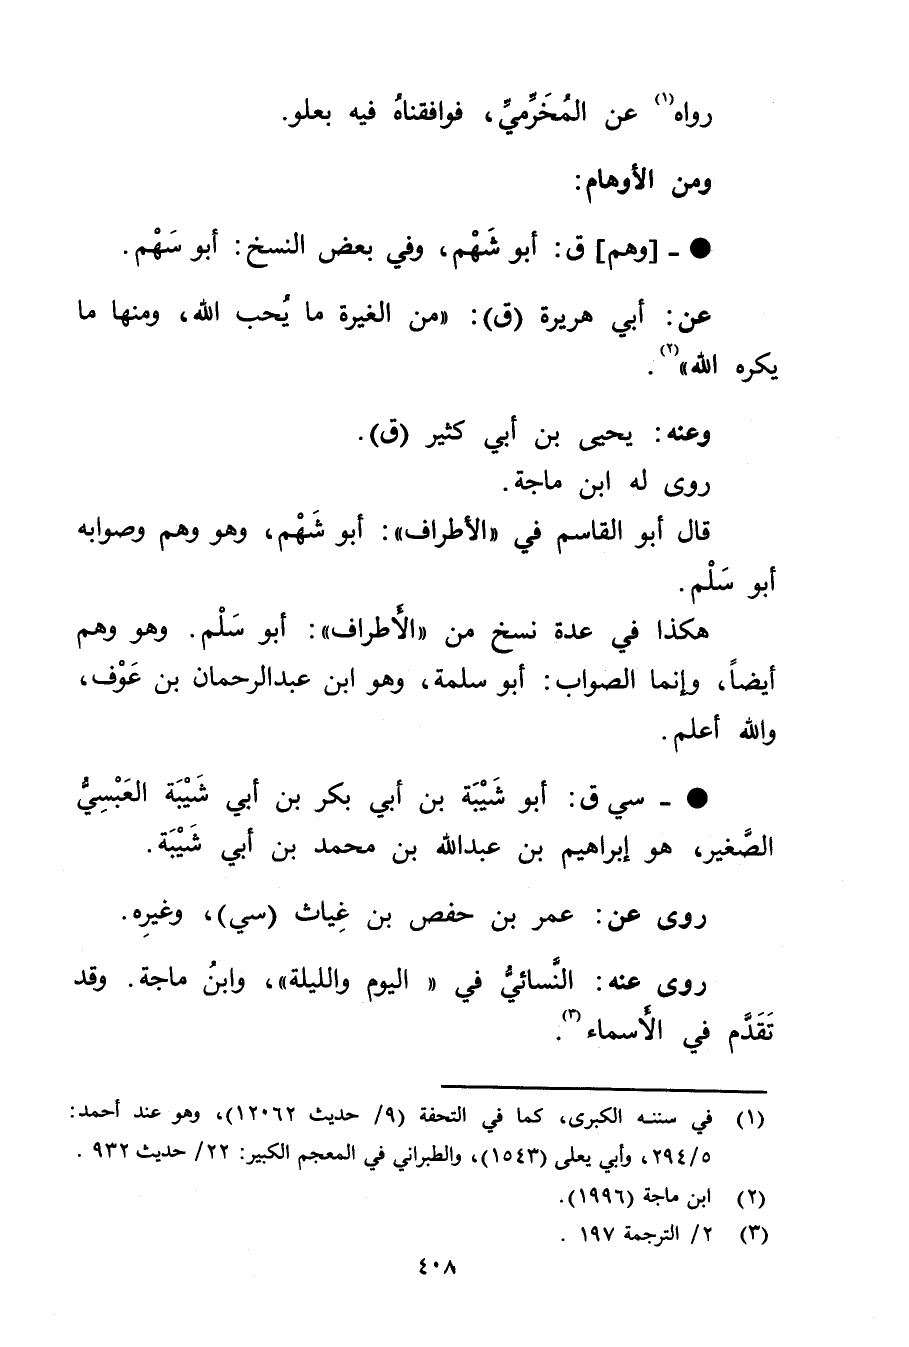 رواه(١) عن المُخَرِّميِّ، فوافقناهُ فيه بعلو.
ومن الأوهام:
● ـ [وهم] ق: أبو شَهْم، وفي بعض النسخ: أبو سَهْم.
عن: أبي هريرة (ق): «من الغيرة ما يُحب الله، ومنها ما
يكره الله»(٢).
وعنه: يحيى بن أبي كثير (ق).
روى له ابن ماجة.
قال أبو القاسم في «الأطراف»: أبو شَهْم، وهو وهم وصوابه
أبو سَلْم.
هكذا في عدة نسخ من «الأَطراف»: أبو سَلْم. وهو وهم
أيضاً، وإنما الصواب: أبو سلمة، وهو ابن عبدالرحمان بن عَوْف،
والله أعلم.
● ـ سي ق: أبو شَيْبَة بن أبي بكر بن أبي شَيْبَة العَبْسِيُّ
الصَّغير، هو إبراهيم بن عبدالله بن محمد بن أبي شَيْبَة.
روى عن: عمر بن حفص بن غِياث (سي)، وغيره.
روى عنه: النَّسائيُّ في « اليوم والليلة»، وابنُ ماجة. وقد
تَقَدَّم في الأَسماء(٣).
(١) في سننه الكبرى، كما في التحفة (٩/ حديث ١٢٠٦٢)، وهو عند أحمد:
٢٩٤/٥، وأبي يعلى (١٥٤٣)، والطبراني في المعجم الكبير: ٢٢/ حديث ٩٣٢ .
(٢) ابن ماجة (١٩٩٦).
(٣) ٢/ الترجمة ١٩٧ .
٤٠٨